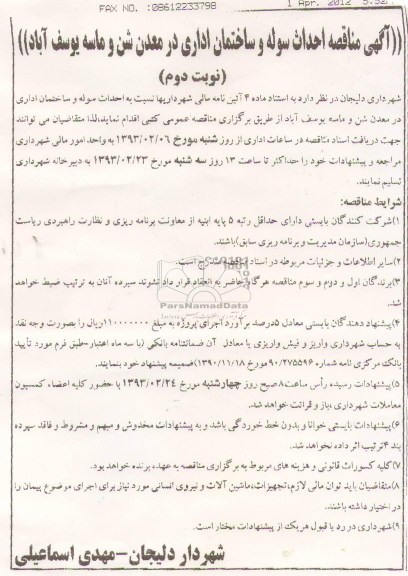 FAX NO. :08612233798
1 Apr. 2012
((آگهی مناقصه احداث سوله و ساختمان اداری در معدن شن و ماسه یوسف آباد))
(نوبت دوم)
شهرداری دلیجان در نظر دارد به استناد ماده ۴ آئین نامه مالی شهرداریها نسبت به احداث سوله و ساختمان اداری
در معدن شن و ماسه یوسف آباد از طریق برگزاری مناقصه عمومی کتبی اقدام نماید،لذا متقاضیان می توانند
جهت دریافت اسناد مناقصه در ساعات اداری از روز شنبه مورخ ۱۳۹۳/۰۲/۰۶ به واحد امور مالی شهرداری
مراجعه و پیشنهادات خود را حداکثر تا ساعت ۱۳ روز سه شنبه مورخ ۱۳۹۳/۰۲/۲۳ به دبیرخانه شهرداری
تسلیم نمایند.
شرایط مناقصه:
۱)شرکت کنندگان بایستی دارای حداقل رتبه ۵ پایه ابنیه از معاونت برنامه ریزی و نظارت راهبردی ریاست
جمهوری(سازمان مدیریت و برنامه ریزی سابق)باشند.
۲)سایر اطلاعات و جزئیات مربوطه در اسناد مناقصه مندرج است.
۳)برندگان اول و دوم و سوم مناقصه هرگاه حاضر به انعقاد قرارداد نشوند سپرده آنان به ترتیب ضبط خواهد
شد.
ParsNamadData
۴)پیشنهاد دهندگان بایستی معادل ۵درصد برآورد اجرای پروژه به مبلغ ریال را بصورت وجه نقد
به حساب شهرداری واریز و فیش واریزی یا معادل آن ضمانتنامه بانکی (با سه ماه اعتبار-طبق فرم مورد تأیید
بانک مرکزی نامه شماره ۹۰/۲۷۵۵۹۶ مورخ ۱۳۹۰/۱۱/۱۸)ضمیمه پیشنهاد خود بنمایند.
۵)پیشنهادات رسیده رأس ساعت ۸صبح روز چهارشنبه مورخ ۱۳۹۳/۰۲/۲۴ با حضور کلیه اعضاء کمسیون
معاملات شهرداری ،باز و قرائت خواهد شد.
۶)پیشنهادات بایستی خوانا و بدون خط خوردگی باشد و به پیشنهادات مخدوش و مبهم و مشروط و فاقد سپرده
بند ۴ترتیب اثر داده نخواهد شد.
۷)کلیه کسورات قانونی و هزینه های مربوط به برگزاری مناقصه به عهده برنده خواهد بود.
۸)متقاضیان باید توان مالی لازم،تجهیزات،ماشین آلات و نیروی انسانی مورد نیاز برای اجرای موضوع پیمان را
در اختیار داشته باشند.
۹)شهرداری در رد یا قبول هریک از پیشنهادات مختار است.
شهردار دلیجان-مهدی اسماعیلی